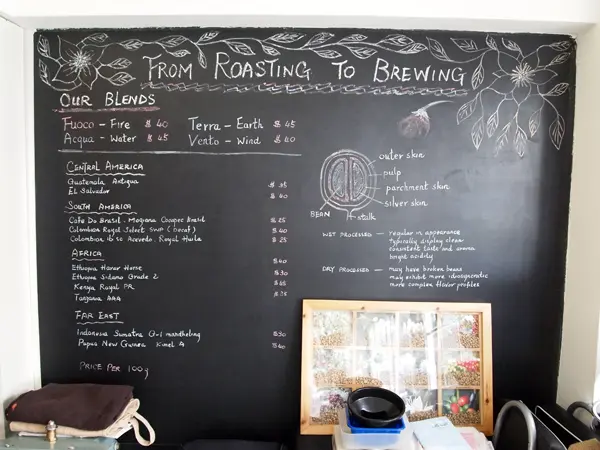 FROM ROASTING TO BREWING
OUR BLENDS
Fuoco - Fire $ 40 Terra - Earth $ 45
Acqua - Water $ 45 Vento - Wind $ 40
CENTRAL AMERICA
Guatemala Antigua $ 35
El Salvador $ 40
SOUTH AMERICA
Cafe Do Brasil - Mogiana Brasil $ 25
Colombian Royal Select SWP (decaf) $ 40
Colombian Acevedo, Royal Huila $ 25
AFRICA $40
Ethiopia Harar Horse $ 30
Ethiopia Sidamo Grade 2
Kenya Royal PR
Tanzania AAA $ 35
FAR EAST
Indonesia Sumatra Gr1 mandheling $30
Papua New Guinea Kimel A $40
PRICE PER 100g
outer skin
pulp
parchment skin
silver skin
BEAN
stalk
WET PROCESSED - regular in appearance
typically display clean
consistent taste and aroma
bright acidity
DRY PROCESSED - may have broken beans
may exhibit more idiosyncratic
more complex flavor profiles